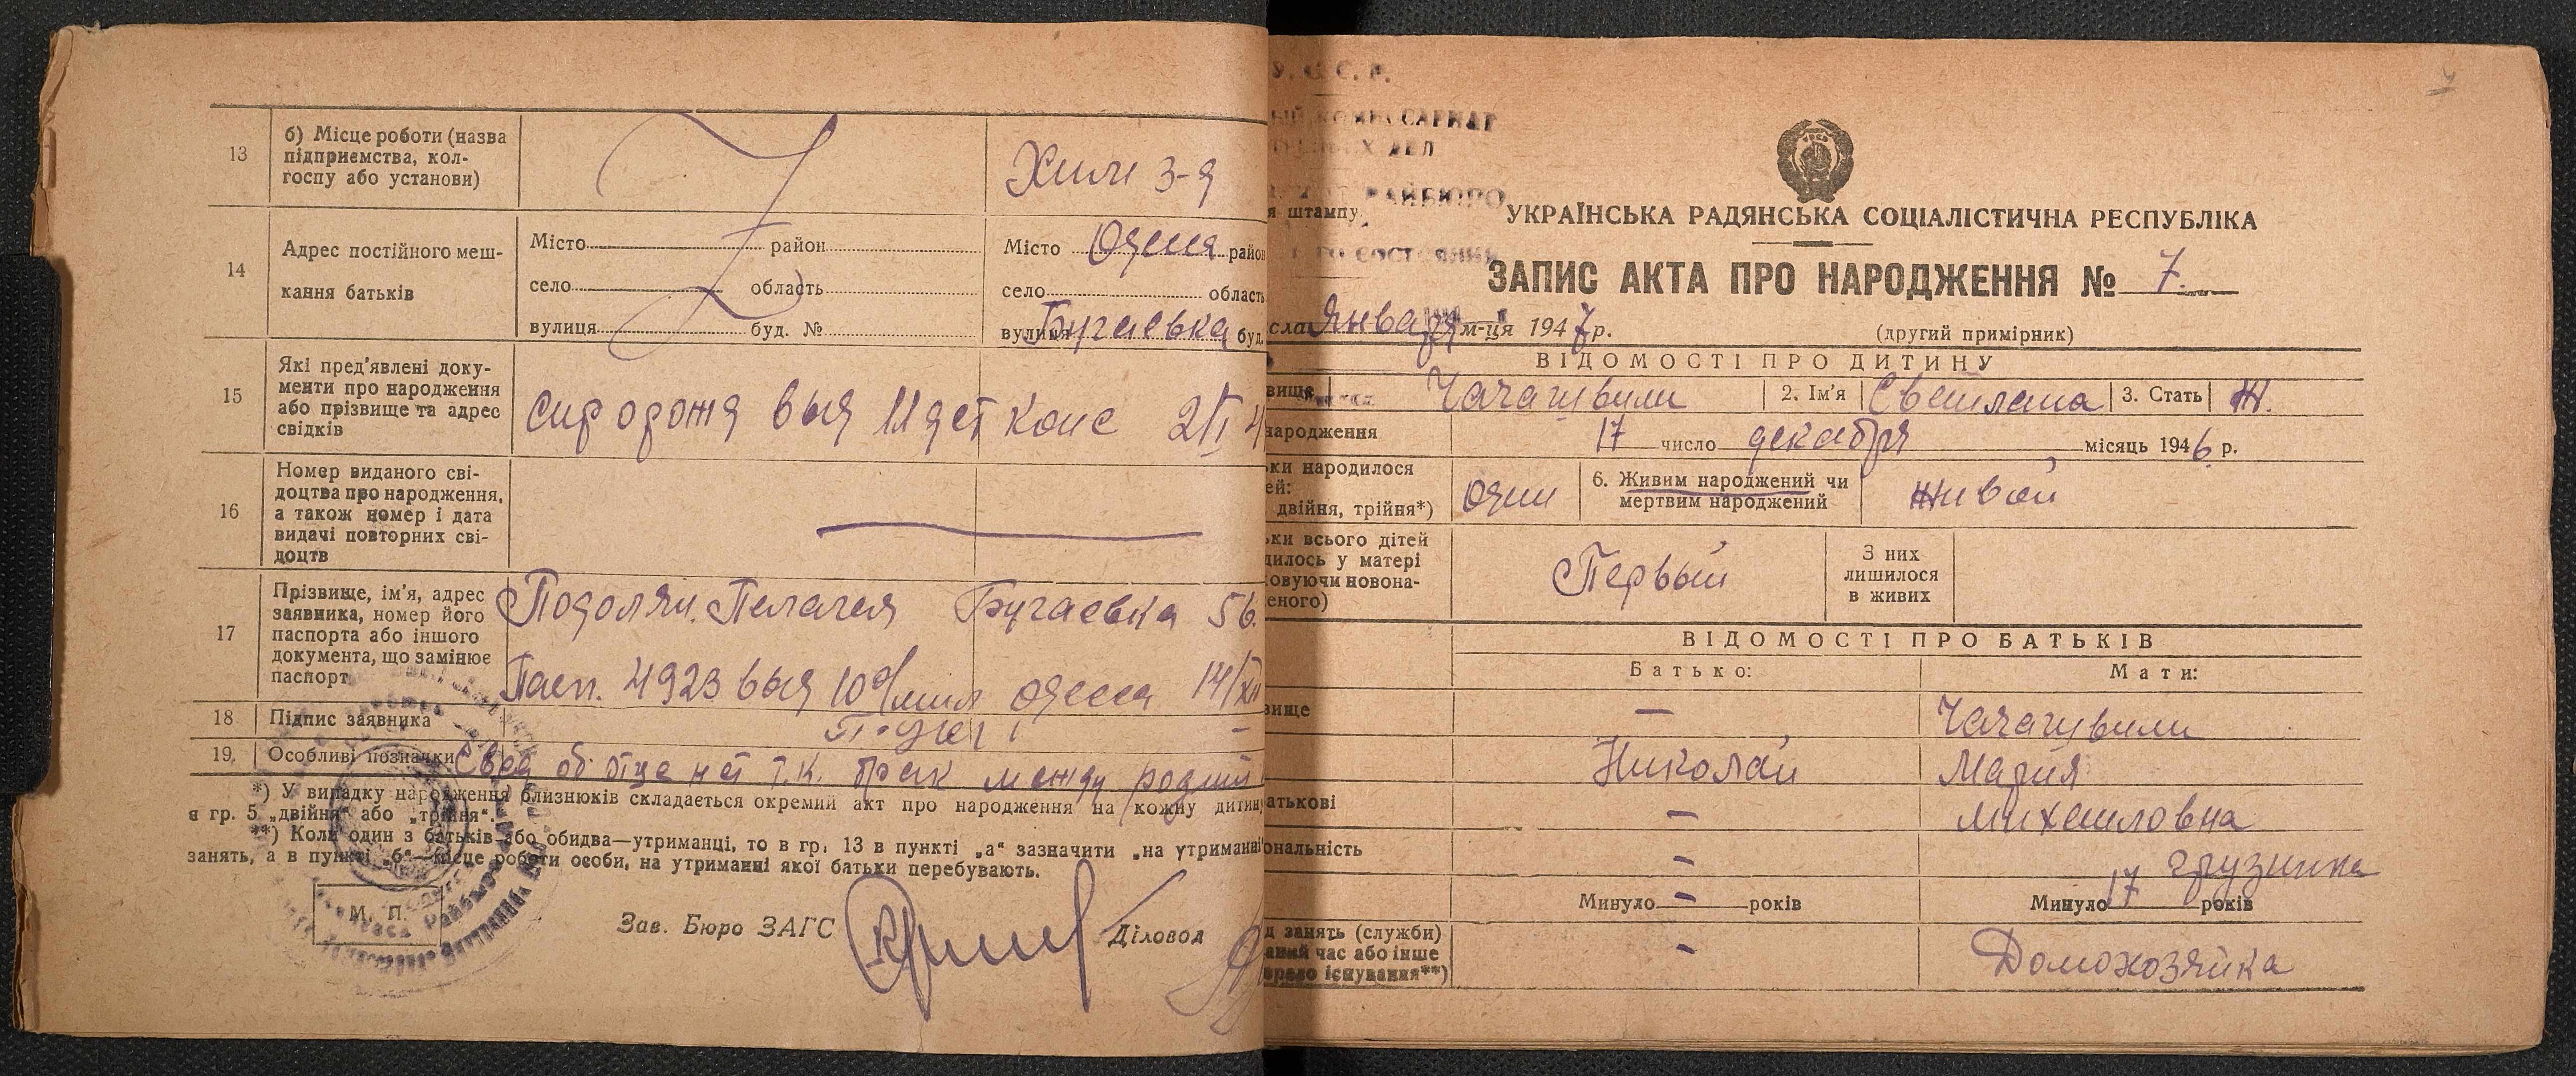 13
б) Місце роботи (назва
підприємства, кол-
госпу або установи)
Хим 3-д
14
Адрес постійного меш-
кання батьків
Місто район
село область
вулиця буд. №
Місто Одесса район
село область
вулиця Бугаевка буд.
15
Які пред'явлені доку-
менти про народження
або прізвище та адрес
свідків
выд 11 дет конс 2/I 4
16
Номер виданого сві-
доцтва про народження,
а також номер і дата
видачі повторних сві-
доцтв
17
Прізвище, ім'я, адрес
заявника, номер його
паспорта або іншого
документа, що замінює
паспорт
Подолян Пелагея Бугаевка 56.
Пасп. 4923 выд 10 о/мил Одесса 14/XII
18 Підпис заявника
19. Особливі позначки Свед об отце нет т.к. брак между родит
*) У випадку народження близнюків складається окремий акт про народження на кожну дитину
я гр. 5 „двійня" або „трійня".
**) Коли один з батьків або обидва—утриманці, то в гр. 13 в пункті „а" зазначити „на утриманні
занять, а в пункті „б"—місце роботи особи, на утриманні якої батьки перебувають.
М. П.
Зав. Бюро ЗАГС Діловод
У. С. С. Р.
РАЙБЮРО
я штампу
УКРАЇНСЬКА РАДЯНСЬКА СОЦІАЛІСТИЧНА РЕСПУБЛІКА
ЗАПИС АКТА ПРО НАРОДЖЕННЯ № 7.
сла Января м-ця 1947 р.
(другий примірник)
ВІДОМОСТІ ПРО ДИТИНУ
вище Чачагшвили 2. Ім'я Светлана 3. Стать Ж.
народження 17 число декабря місяць 1946 р.
ьки народилося
ей:
двійня, трійня*)
один
6. Живим народжений чи
мертвим народжений
живой
ьки всього дітей
дилось у матері
овуючи новона-
еного)
Первый
З них
лишилося
в живих
ВІДОМОСТІ ПРО БАТЬКІВ
Батько: Мати:
вище — Чачагшвили
Николай Мария
атькові — Михайловна
ональність — грузинка
Минуло — років Минуло 17 років
д занять (служби)
аний час або інше
ерело існування**)
— Домохозяйка